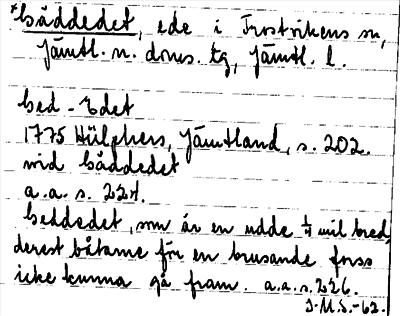 *båddedet, ede i Trostvikens sn,
Jämtl. n. doms. tg, Jämtl. l.
bed-Edet
1775 Hülphers, Jämtland, s. 202.
vid båddedet
a.a. s. 224.
beddedet, som är en udde ¼ mil bred,
derest båtarne för en brusande forss
icke kunna gå fram. a.a.s.226.
J.M.S.-62.